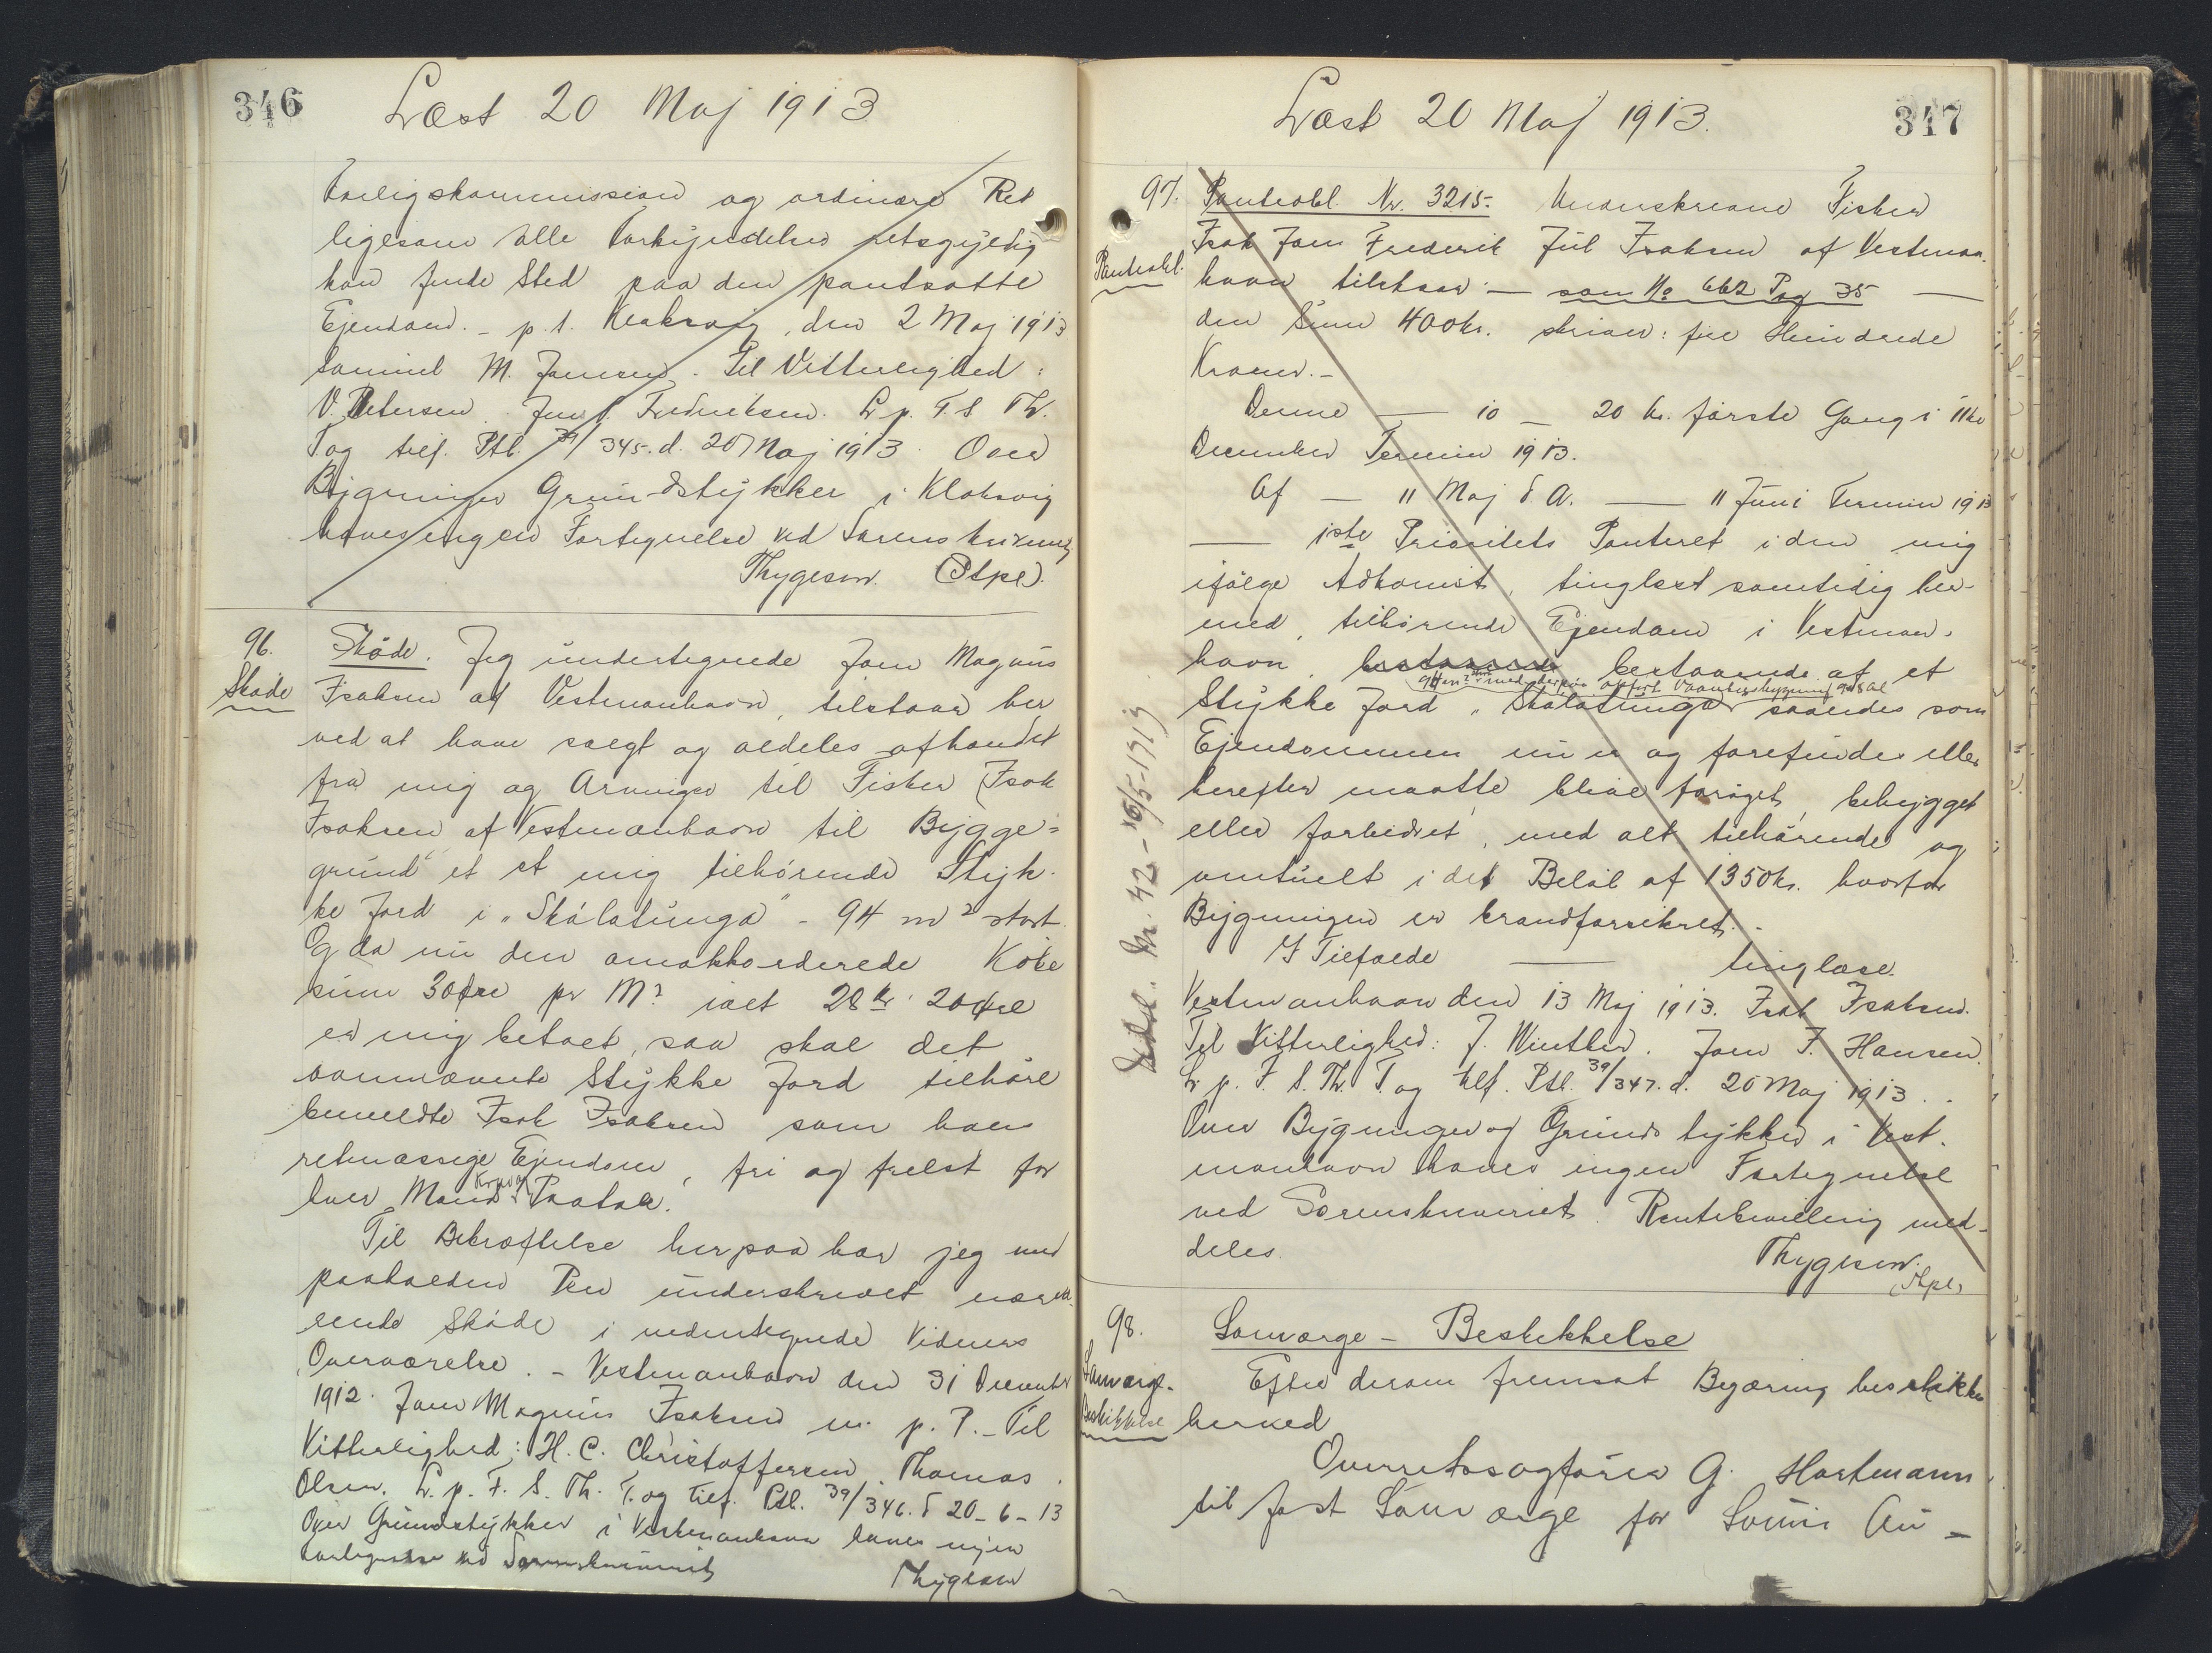 346
Læst 20 Maj 1913
Forligskommission og ordinære Ret
ligesom alle Forkyndelser retsgyldig
kan finde Sted paa den pantsatte
Ejendom. - p.t. Klaksvig, den 2 Maj 1913
Samuel M. Joensen. Til Vitterlighed:
V. Petersen. Jens S. Fredriksen. L. p. F. S. Th.
T og tilf. Ptl. 39/345. d. 20 Maj 1913. Over
Bygninger Grundstykker i Klaksvig
haves ingen Fortegnelse ved Sorenskriveriet
Thygesen. (Stpl).
96.
Skøde
Skøde. Jeg undertegnede Joen Magnus
Isaksen af Vestmanhavn, tilstaar her
ved at have solgt og aldeles afhændet
fra mig og Arvinger til Fisker Isak
Isaksen af Vestmanhavn til Bygge=
grund et et mig tilhørende Styk-
ke Jord i "Skálatunga" - 94 m² stort.
Og da nu den omakkorderede Købe
sum 30 Øre pr M² ialt 28 Kr. 20 Øre
er mig betalt, saa skal det
ovennævnte Stykke Jord tilhøre
bemeldte Isak Isaksen som hans
retmæssige Ejendom, fri og frelst for
hver Mands Krav og Paatale.
Til Bekræftelse herpaa har jeg med
paaholden Pen underskrevet nærvæ-
rende Skøde i undertegnede Vidners
Overværelse. - Vestmanhavn den 31 December
1912. Joen Magnus Isaksen m. p. P. - Til
Vitterlighed: H. C. Christoffersen. Thomas
Olsen. L. p. F. S. Th. T. og tilf. Ptl. 39/346. d 20-6-13
Over Grundstykker i Vestmanhavn haves ingen
Fortegnelse ved Sorenskriveriet
Thygesen
347
Læst 20 Maj 1913.
97.
Panteobl.
Panteobl. Nr. 3215. Underskrevne Fisker
Isak Joen Frederik Jul Isaksen af Vestman-
havn tilstaar: — som No 662 Pag 35 —
den Sum 400 Kr. skriver: fire Hundrede
Kroner. -
Denne — 10 — 20 Kr. første Gang i 11te
December Termin 1913.
Af — 11 Maj d. A. — 11 Juni Termin 1913
— 1ste Prioritets Panteret i den mig
ifølge Adkomst, tinglæst samtidig her-
med, tilhørende Ejendom i Vestman-
havn, bestaaende bestaaende af et
94 m² stort med derpaa opført Vaaningsbygning
Stykke Jord "Skálatunga" saaledes som
Ejendommen nu er og forefindes eller
herefter maatte blive forøget, bebygget
eller forbedret, med alt tilhørende og
eventuelt i det Beløb af 1350 Kr. hvorfor
Bygningen er brandforsikret. -
I Tilfælde — tinglæse.
Vestmanhavn den 13 Maj 1913. Isak Isaksen.
Til Vitterlighed: J. Winther. Joen F. Hansen.
L. p. F. S. Th. T. og tilf. Ptl. 39/347. d. 20 Maj 1913. .
Over Bygninger og Grundstykker i Vest-
manhavn haves ingen Fortegnelse
ved Sorenskriveriet. Rentebevilling med-
deles.
Thygesen.
(Stpl)
98.
Lavværge-
Beskikkelse
Lavværge - Beskikkelse
Efter derom fremsat Begæring beskikkes
herved
Overretssagfører G. Hartmann
til fast Lavværge for Louise Au=